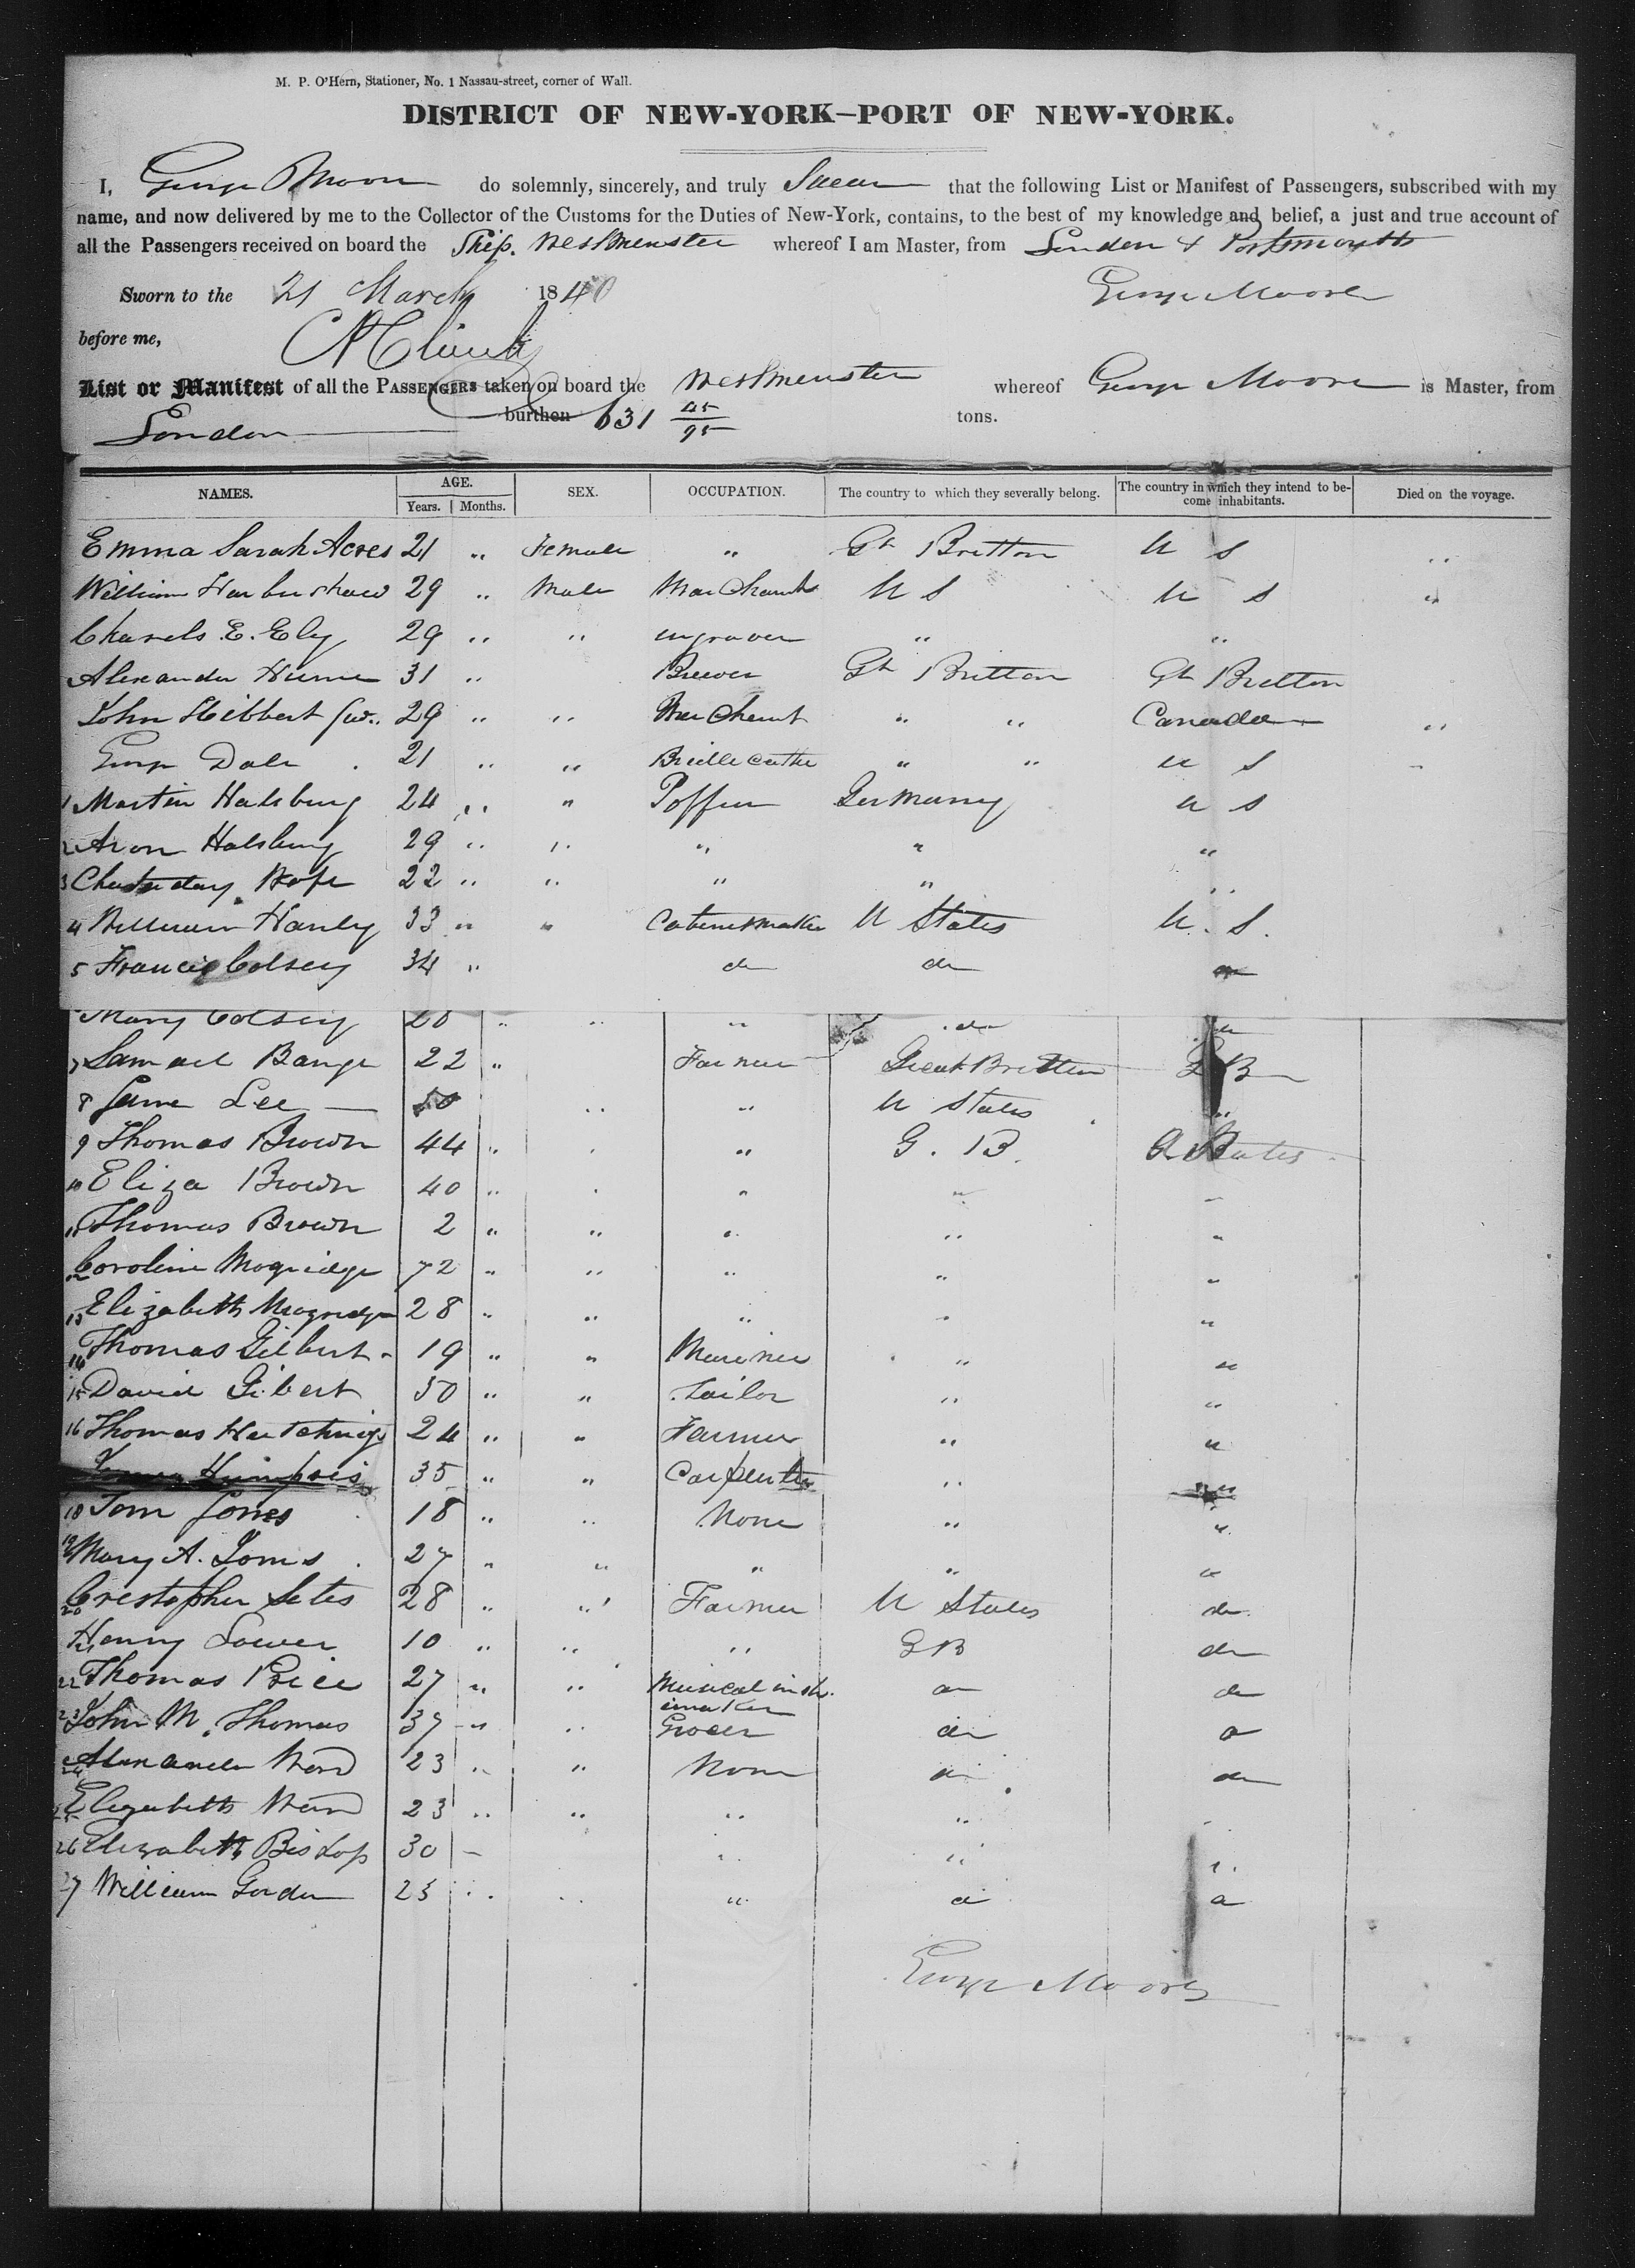 M. P. O'Hern, Stationer, No. 1 Nassau-street, corner of Wall.
DISTRICT OF NEW-YORK—PORT OF NEW-YORK.
I, George Moore do solemnly, sincerely, and truly Swear that the following List or Manifest of Passengers, subscribed with my
name, and now delivered by me to the Collector of the Customs for the Duties of New-York, contains, to the best of my knowledge and belief, a just and true account of
all the Passengers received on board the Ship. Westmenster whereof I am Master, from London & Portsmouth
Sworn to the 21 March 1840 George Moore
before me,
List or Manifest of all the PASSENGERS taken on board the Westmenster whereof George Moore is Master, from
London burthen 631 45/95 tons.
NAMES. AGE. Years. Months. SEX. OCCUPATION. The country to which they severally belong. The country in which they intend to be-come inhabitants. Died on the voyage.
Emma Sarah Acres 21 " Female " Gt Britton U S "
William Harburshaw 29 " Male Marchant U S U S "
Charels E. Ely 29 " " engraver " "
Alexander Hume 31 " Brewer Gt Britton Gt Britton
John Hibbert 29 " " Marchant " " Canada "
George Dale 21 " " " " U S
1 Martin Halsburg 24 " " Germany U S
2 Aron Halsburg 29 " " " " "
3 22 " " " " "
4 William Hanly 33 " " Cabinetmaker U States U. S.
5 Francis Colsey 34 " do do
Mary Colsey 20 " " " do do
7 Samuel Bange 22 " Farmer Great Britten G B
8 Jame Lee " " U States "
9 Thomas Brown 44 " " G. B. U States
10 Eliza Brown 40 " " "
11 Thomas Brown 2 " " " " "
12 Caroline Mogridge 72 " " " " "
13 Elizabeth Mogridge 28 " " " " "
14 Thomas Gilbert 19 " " Mariner " "
15 David Gilbert 50 " " Tailor " "
16 Thomas Hutchings 24 " " Farmer " "
35 " " Carpenter " "
18 Tom Jones 18 " " None " "
19 Mary A. Toms 27 " " " " "
20 Crestopher Setes 28 " " Farmer U States do
21 Henry Lower 10 " " " G B do
22 Thomas Price 27 " " Musical instr. maker do do
23 John M. Thomas 37 " " Grocer do do
24 Alexander 23 " " None do do
25 Elizabeth 23 " " " "
26 Elizabeth Bishop 30 - " " "
27 William Gorden 23 " " " do do
George Moore